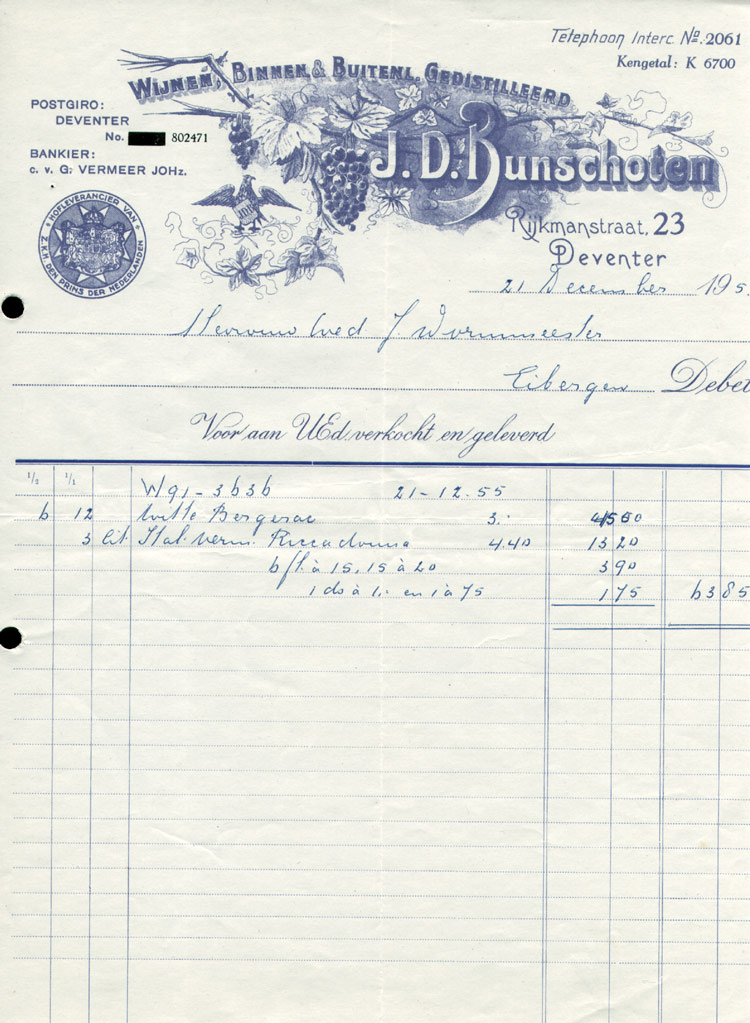 Telephoon Interc. No. 2061
Kengetal: K 6700
Wijnen, Binnen & Buitenl. Gedistilleerd
POSTGIRO:
DEVENTER
No. 802471
BANKIER:
c. v. G. VERMEER JOHz.
J. D. Bunschoten
HOFLEVERANCIER VAN
Z.K.H. DEN PRINS DER NEDERLANDEN
Rijkmanstraat, 23
Deventer
21 December 195
Wed J. Wormmeester
Eibergen Debet
Voor aan UEd. verkocht en geleverd
1/2 1/1
W91-3636 21-12-55
6 12 Witte Bergerac 3.-
3 lit Ital. Verm. Riccadonna 4.40 13 20
6 fl. à 15, 15 à 20 3 90
1 do à 1,- en 1 à 75 1 75 63 85